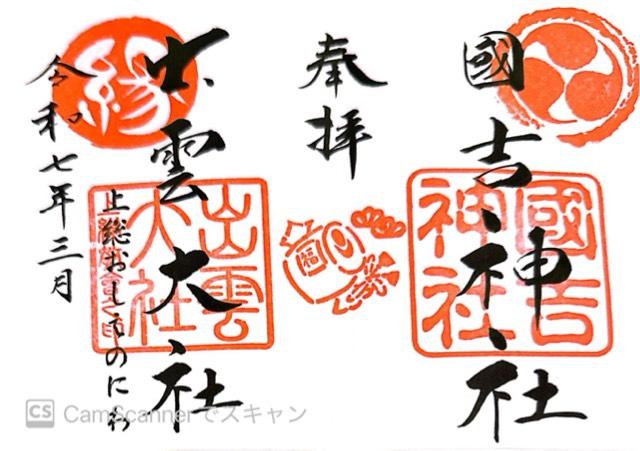 國吉神社
國吉
神社
奉拝
福
出雲大社
出雲
大社
縁
上総
令和七年三月
CS CamScannerでスキャン